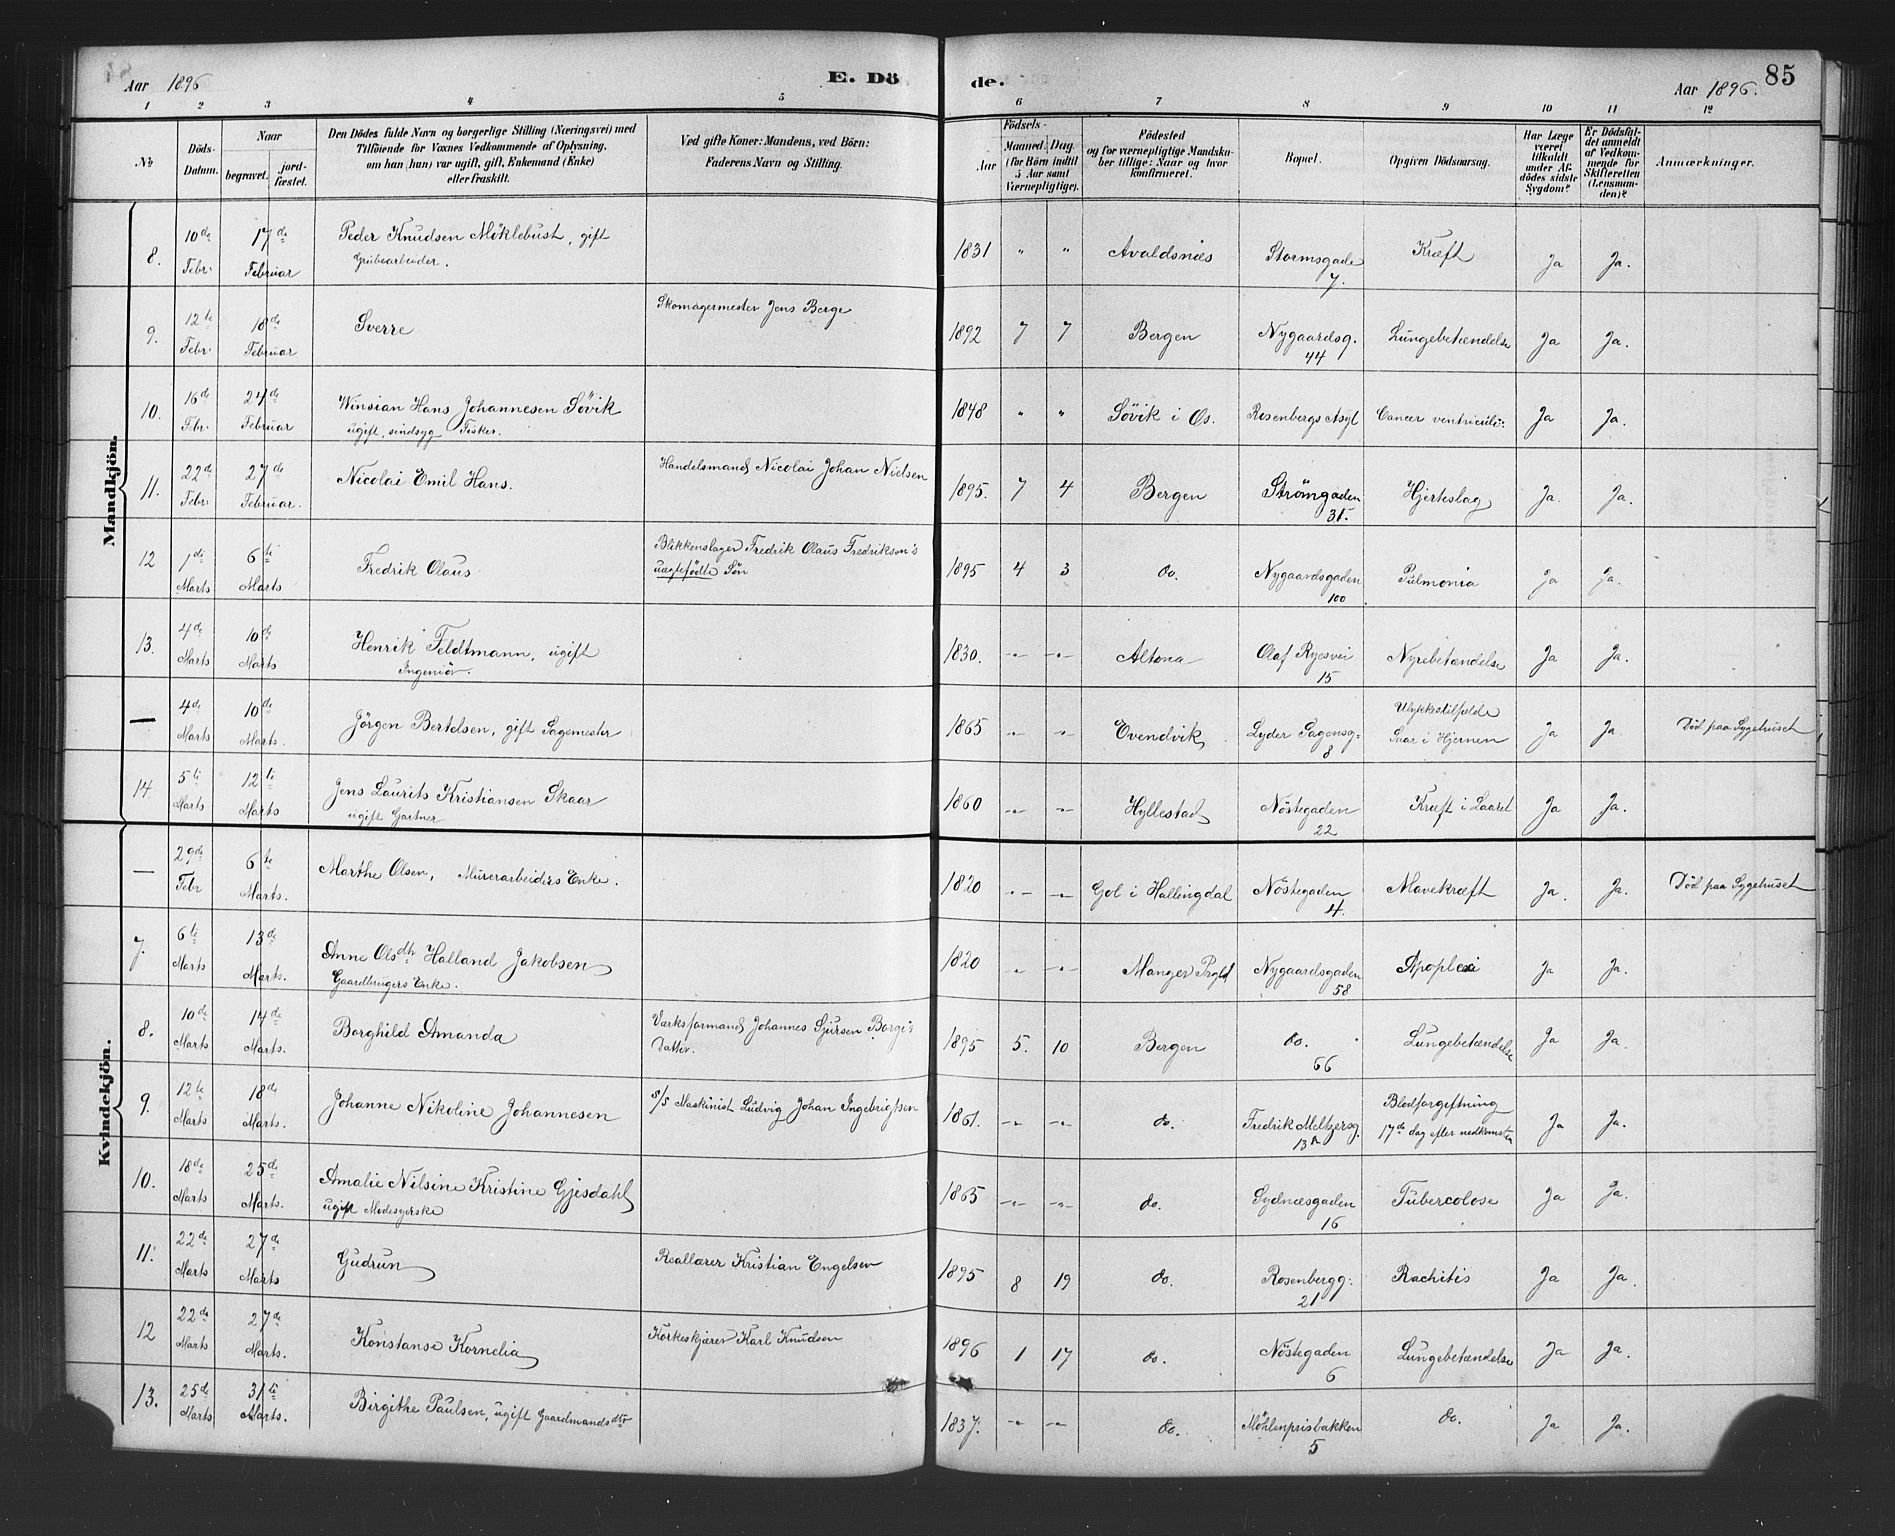 Aar 1896
E. Döde.
Aar 1896.
85
1 2 3 4 5 6 7 8 9 10 11 12
No
Döds-Datum.
Naar
begravet.
jord-fæstet.
Den Dödes fulde Navn og borgerlige Stilling (Næringsvei) med
Tilföiende for Voxnes Vedkommende af Oplysning,
om han (hun) var ugift, gift, Enkemand (Enke)
eller fraskilt.
Ved gifte Koner: Mandens, ved Börn:
Faderens Navn og Stilling.
Födsels-
Aar
Maaned. Dag.
(for Börn indtil
5 Aar samt
Værnepligtige).
Födested
og for værnepligtige Mandska-
ber tillige: Naar og hvor
konfirmeret.
Bopæl.
Opgiven Dödsaarsag.
Har Læge
været
tilkaldt
under Af-
dödes sidste
Sygdom?
Er Dödsfal-
det anmeldt
af Vedkom-
mende for
Skifteretten
(Lensman-
den)?
Anmærkninger.
Mandkjön.
8. 10de Febr. 17de Februar Peder Knudsen Möklebust, gift 1831 " " Avaldsnæs Stormsgade 7. Kræft Ja Ja.
Grubearbeider.
9. 12te Febr. 18de Februar Sverre Skomagermester Jens Berge 1892 7 7 Bergen Nygaardsg. 44 Lungebetændelse Ja Ja.
10. 16de Febr. 24de Februar Winsian Hans Johannesen Sövik 1848 " " Sövik i Os. Rosenbergs Asyl Cancer ventriculi: Ja Ja.
ugift, sindsyg Fisker.
11. 22de Febr. 27de Februar. Nicolai Emil Hans. Handelsmand Nicolai Johan Nielsen 1895. 7 4 Bergen Strömgaden 31. Hjerteslag Ja. Ja.
12 1de Marts 6te Marts Fredrik Olaus Blikkenslager Fredrik Olaus Fredrikson's 1895 4 3 do. Nygaardsgaden 100 Pulmonia Ja Ja.
uægtefödte Sön
13. 4de Marts 10de Marts Henrik Feldtmann, ugift 1830. -"- -"- Altona Olaf Ryesvei 15 Nyrebetændelse Ja Ja.
Ingeniör.
— 4de Marts 10de Marts. Jörgen Bertelsen, gift Sagemester 1865 -"- -"- Evendvik Lyder Sagensg= 8 Ulykkestilfælde Ja Ja. Död paa Sygehuset
Saar i Hjernen
14. 5te Marts 12te Marts Jens Laurits Kristiansen Skaar 1860 -"- -"- Hyllestad Nöstegaden 22 Kræft i Laaret Ja Ja.
ugift Gartner
Kvindekjön.
— 29de Febr 6te Marts. Marthe Olsen, Murerarbeiders Enke. 1820 -"- -"- Gol i Hallingdal Nöstegaden 4. Mavekræft Ja. Ja. Död paa Sygehuset
7. 6te Marts 13de Marts. Anne Olsdtr Halland Jakobsen 1820 -"- -"- Manger Prgld Nygaardsgaden 58 Apoplexi Ja Ja.
Gaardbrugers Enke.
8. 10de Marts 14de Marts. Borghild Amanda Værksformand Johannes Sjursen Borge's 1895 5. 10 Bergen do. 66 Lungebetændelse Ja Ja.
Datter.
9. 12te Marts 18de Marts. Johanne Nikoline Johannesen S/S Maskinist Ludvig Johan Ingebrigtsen 1861. -"- -"- do. Fredrik Meltzersg. 13A Blodforgiftning Ja Ja.
17de dag efter nedkomsten
10. 18de Marts 25de Marts. Amalie Nilsine Kristine Gjesdahl 1865 -"- -"- do. Sydnæsgaden 16 Tubercolose Ja Ja.
ugift Modesyerske
11. 22de Marts 27de Marts Gudrun Reallærer Kristian Engelsen 1895 8 19 do. Rosenbergg: 21 Rachitis Ja Ja.
12 22de Marts 27de Marts. Konstanse Kornelia Korkeskjærer Karl Knudsen 1896 1 17 do. Nöstegaden 6 Lungebetændelse Ja Ja.
13. 25de Marts 31te Marts. Birgithe Paulsen, ugift Gaardmandsdtr 1837. -"- -"- do. Möhlenprisbakken 5 do. Ja Ja.